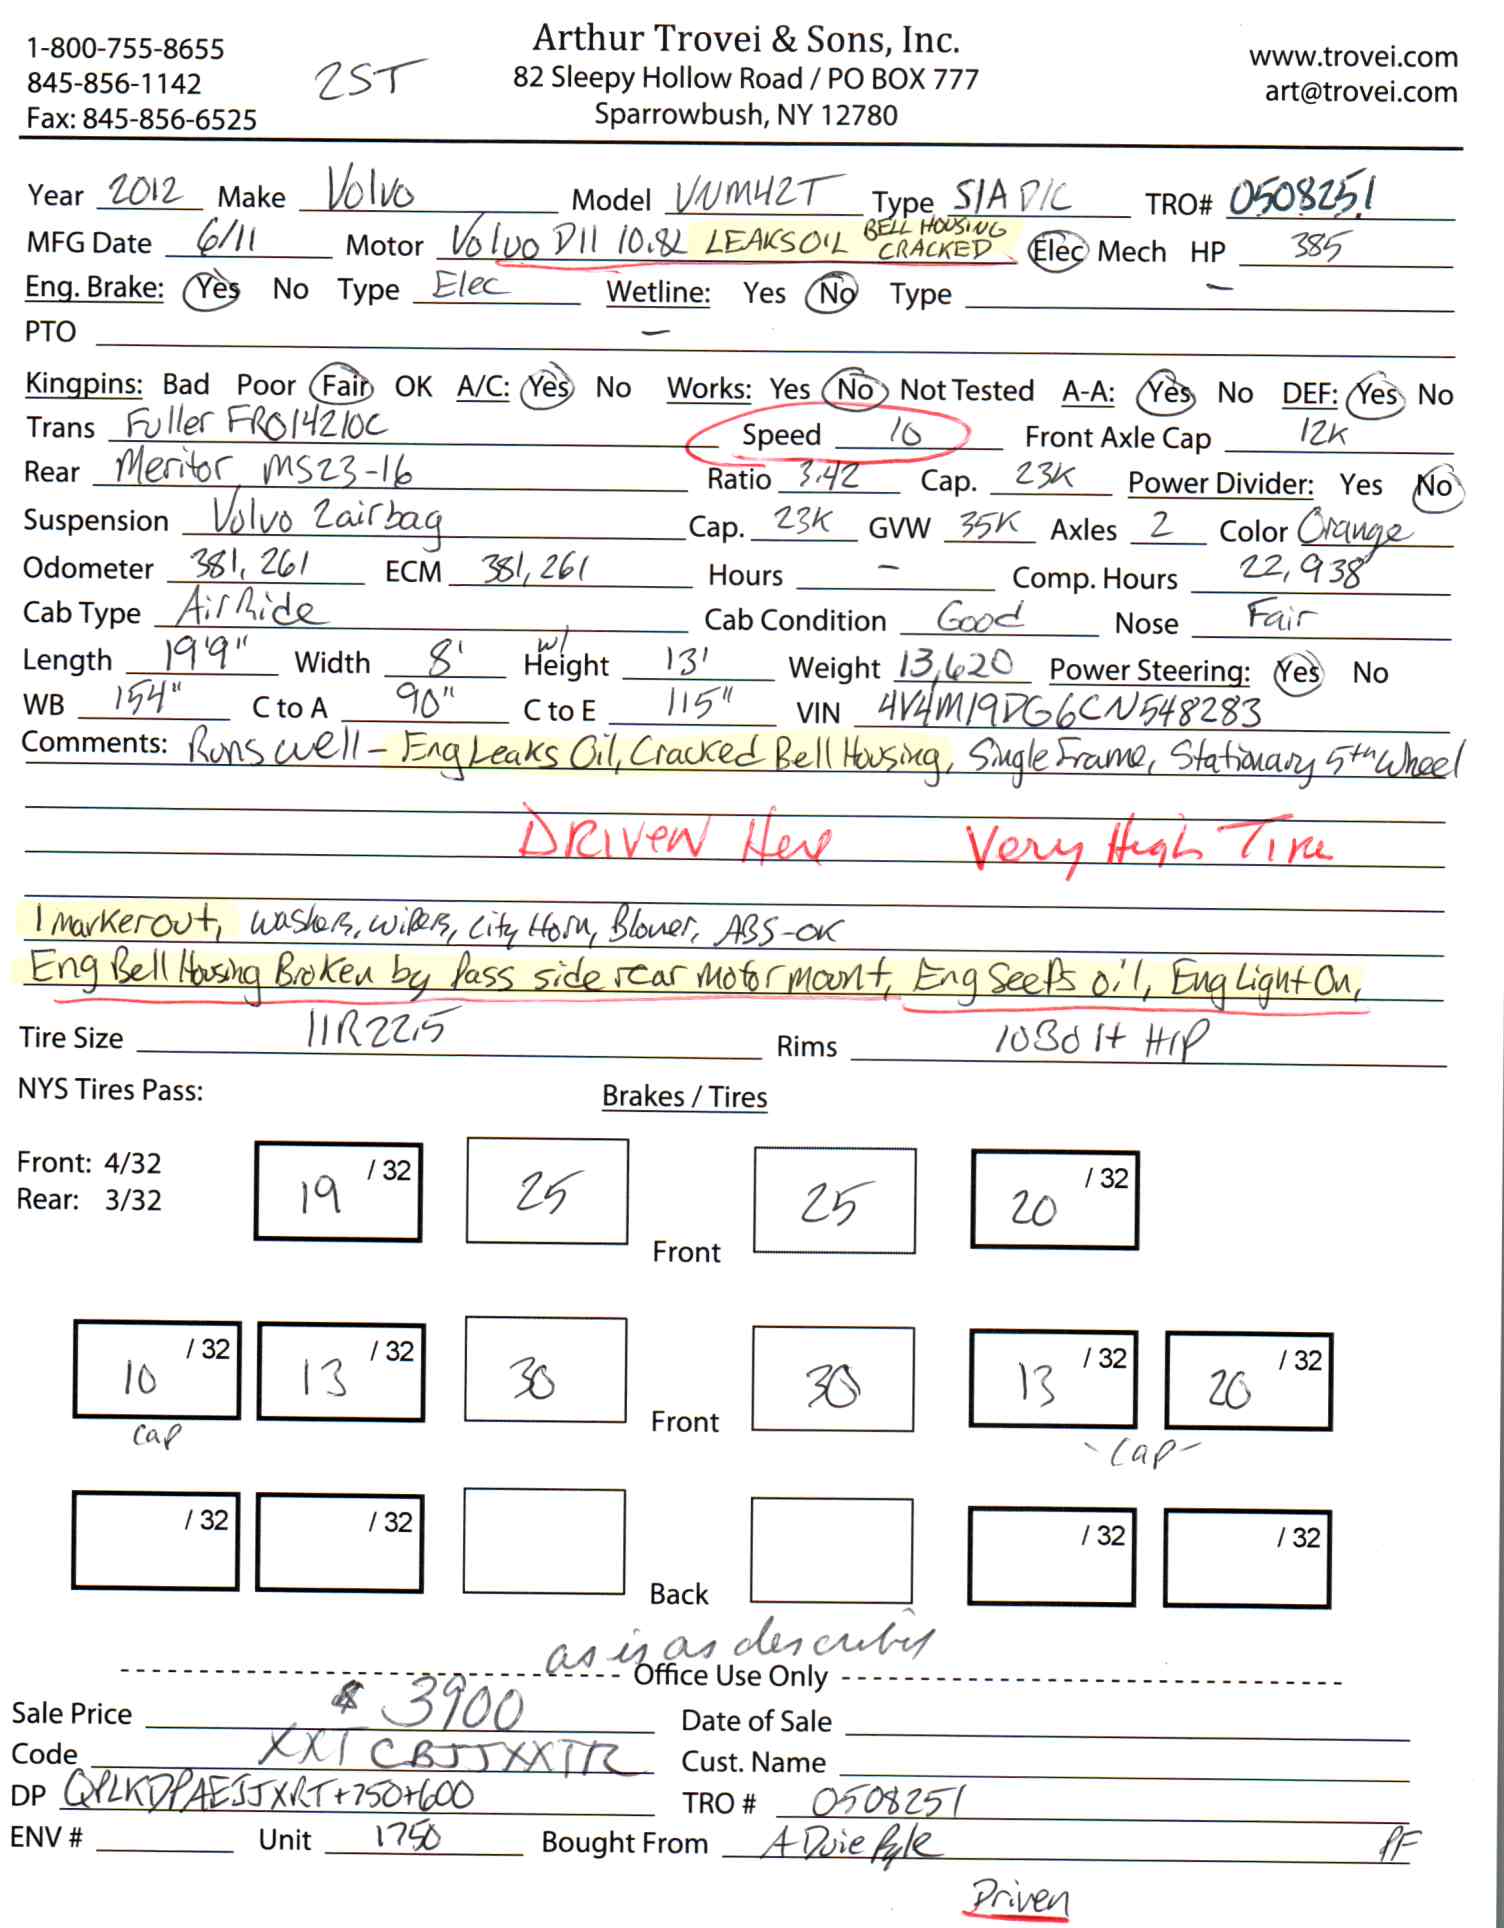 1-800-755-8655
845-856-1142
Fax: 845-856-6525
2ST
Arthur Trovei & Sons, Inc.
82 Sleepy Hollow Road / PO BOX 777
Sparrowbush, NY 12780
www.trovei.com
art@trovei.com
Year 2012 Make Volvo Model VNM42T Type S/A D/C TRO# 0508251
MFG Date 6/11 Motor Volvo D11 10.8L LEAKS OIL BELL HOUSING CRACKED Elec Mech HP 385
Eng. Brake: Yes No Type Elec Wetline: Yes No Type –
PTO –
Kingpins: Bad Poor Fair OK A/C: Yes No Works: Yes No Not Tested A-A: Yes No DEF: Yes No
Trans Fuller FRO14210C Speed 10 Front Axle Cap 12K
Rear Meritor MS23-16 Ratio 3.42 Cap. 23K Power Divider: Yes No
Suspension Volvo 2airbag Cap. 23K GVW 35K Axles 2 Color Orange
Odometer 381,261 ECM 381,261 Hours – Comp. Hours 22,938
Cab Type AirRide Cab Condition Good Nose Fair
Length 19'9" Width 8' w/ Height 13' Weight 13,620 Power Steering: Yes No
WB 154" C to A 90" C to E 115" VIN 4V4M19DG6CN548283
Comments: Runs well – Eng Leaks Oil, Cracked Bell Housing, Single Frame, Stationary 5th Wheel
DRIVEN Here Very High Tire
1 marker out, washers, wipers, City Horn, Blower, ABS-OK
Eng Bell Housing Broken by Pass side rear motor mount, Eng Seeps oil, Eng Light On,
Tire Size 11R22.5 Rims 10Bolt H/P
NYS Tires Pass: Brakes / Tires
Front: 4/32
Rear: 3/32
19 /32 25 Front 25 20 /32
10 /32 13 /32 30 Front 30 13 /32 20 /32
cap -cap-
/32 /32 Back /32 /32
as is as describ
Office Use Only
Sale Price $3900 Date of Sale
Code XXTCBJJXXTR Cust. Name
DP QPLKDPAEJJXRT+750+600 TRO # 0508251
ENV # Unit 1750 Bought From A Duie Pyle PF
Driven